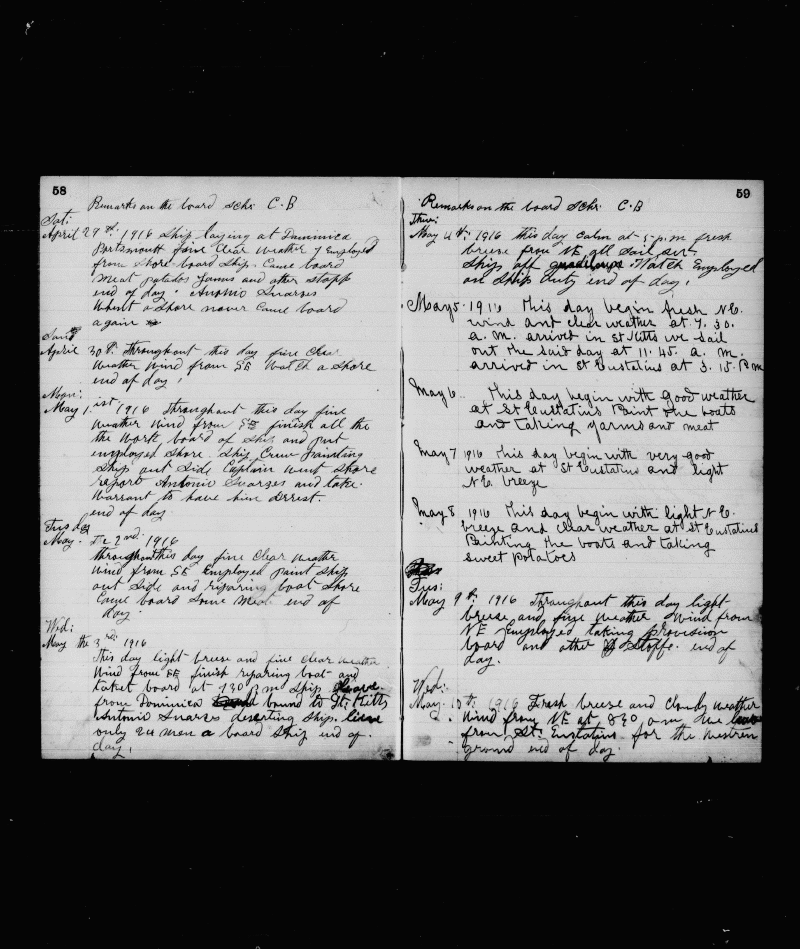 58
Remarks on the board Schr. C. B
Sat:
April 29th, 1916 Ship laying at Dominica
Portsmouth fine Clear weather Employed
from Shore board Ship. Came board
meat potatos yams and other stopp
end of day. Antonio Suarzes
Went a Shore never Came board
again
Sund
April 30th. Throughout this day fine Clear
weather Wind from SE Watch a Shore
end of day,
Mon:
May 1.ist, 1916 Throughout this day fine
weather Wind from finish all the
the work board of Ship and put
employed Shore. Ship Crew painting
Ship out Side Captain went Shore
report Antonio Suarzes and take.
Warrant to have him Arrest.
end of day.
Tuesd
May. 2nd. 1916
throughout this day fine Clear weather
Wind from SE Employed paint Ship
out Side and riparing boat Shore
Came board Some meat end of
day.
Wed:
May the 3rd. 1916
This day light breese and fine Clear weather
Wind from SE finish reparing boat and
taket board at 130 P m Ship
from Dominica bound to St. Kitts
Antonio Suarzs deserting Ship.
only 24 men a board Ship end of.
day,
59
Remarks on the board Schr. C. B
Thur:
May 4th: 1916 this day calm at 5 p.m fresh
breese from NE all Sail Set.
Ship off Watch Employed
on Ship duty end of day,
May 5. 1916 This day begin fresh N.E.
wind and clear weather at 7. 30.
a. m. arrived in St Kitts we sail
out the said day at 11. 45. a. m.
arrived in St Eustatius at 3. 15. P.m
May 6. This day begin with good weather
at St Eustatius Paint the boats
and taking yarms and meat
May 7 1916 this day begin with very good
weather at St Eustatius and light
N.E. breeze
May 8 1916 This day begin with light N.E.
breeze and clear weather at St Eustatius
Painting the boats and taking
sweet potatoes
Tues:
May 9th. 1916 Throughout this day light
breese and fine weather Wind from
NE Employed taking provision
board and other Stoffe. end of
day.
Wed:
May. 10th. 1916 Fresh breese and Cloudy weather
Wind from NE at 830 a m, We
from St. Eustatius for the Western
ground end of day.